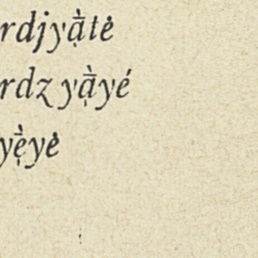 rdjyạ̀tė
rdz yạ̀yé
yẹ̀yė